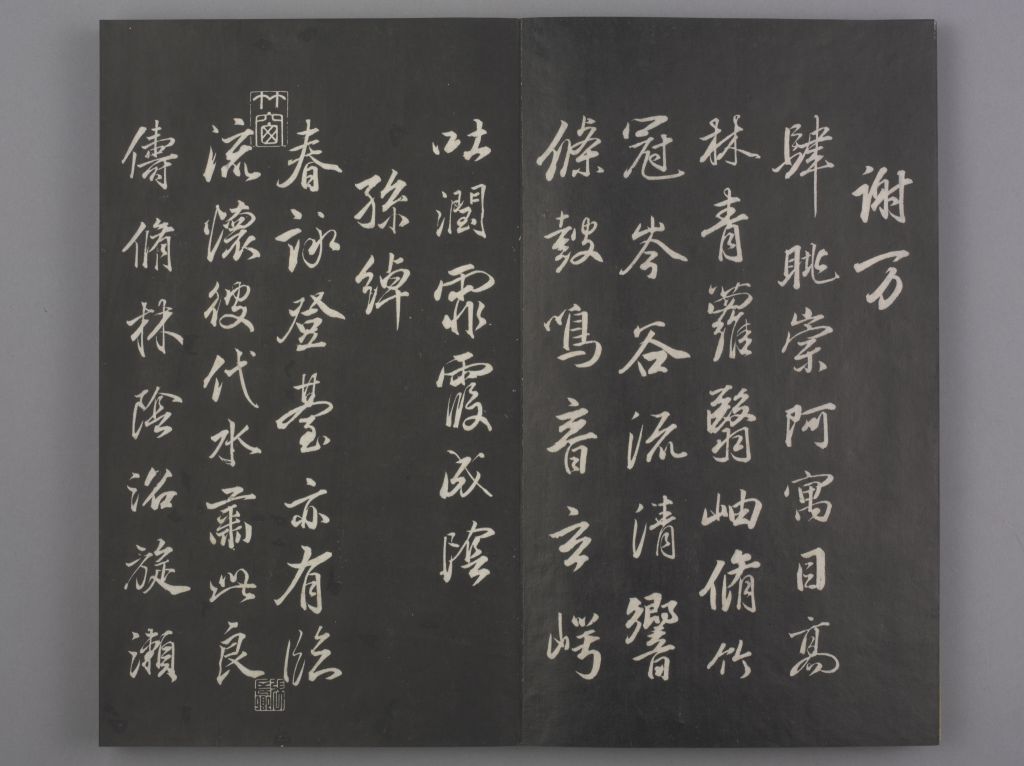 謝万
肆眺崇阿寓目高
林青蘿翳岫脩竹
冠岑谷流清響
條鼓鳴音玄崿
吐潤霏霞成陰
孫綽
春詠登臺亦有臨
流懷彼代水肅此良
儔脩林陰沼旋瀨
竹窗